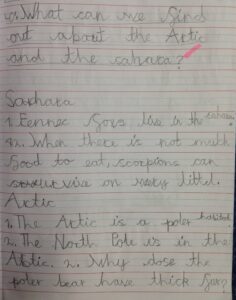 What can we find
out about the Artic
and the sahara?
Sarhara
1. Fennec foxs live in the sahara
2. When there is not much
food to eat, scorpions can
vive on very littel.
Artic
1. The Artic is a poler habitat.
2. The North Pole is in the
Artic. 2. Why dose the
poler bear have thick fur?